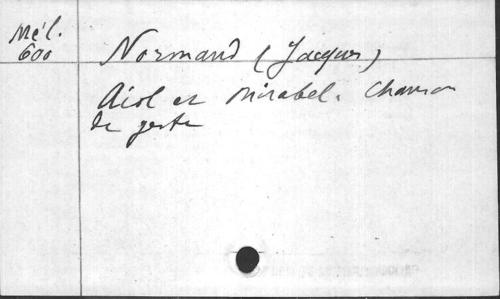 Mél.
600
Normand (Jacques)
Aiol et Mirabel. Chanson
de geste